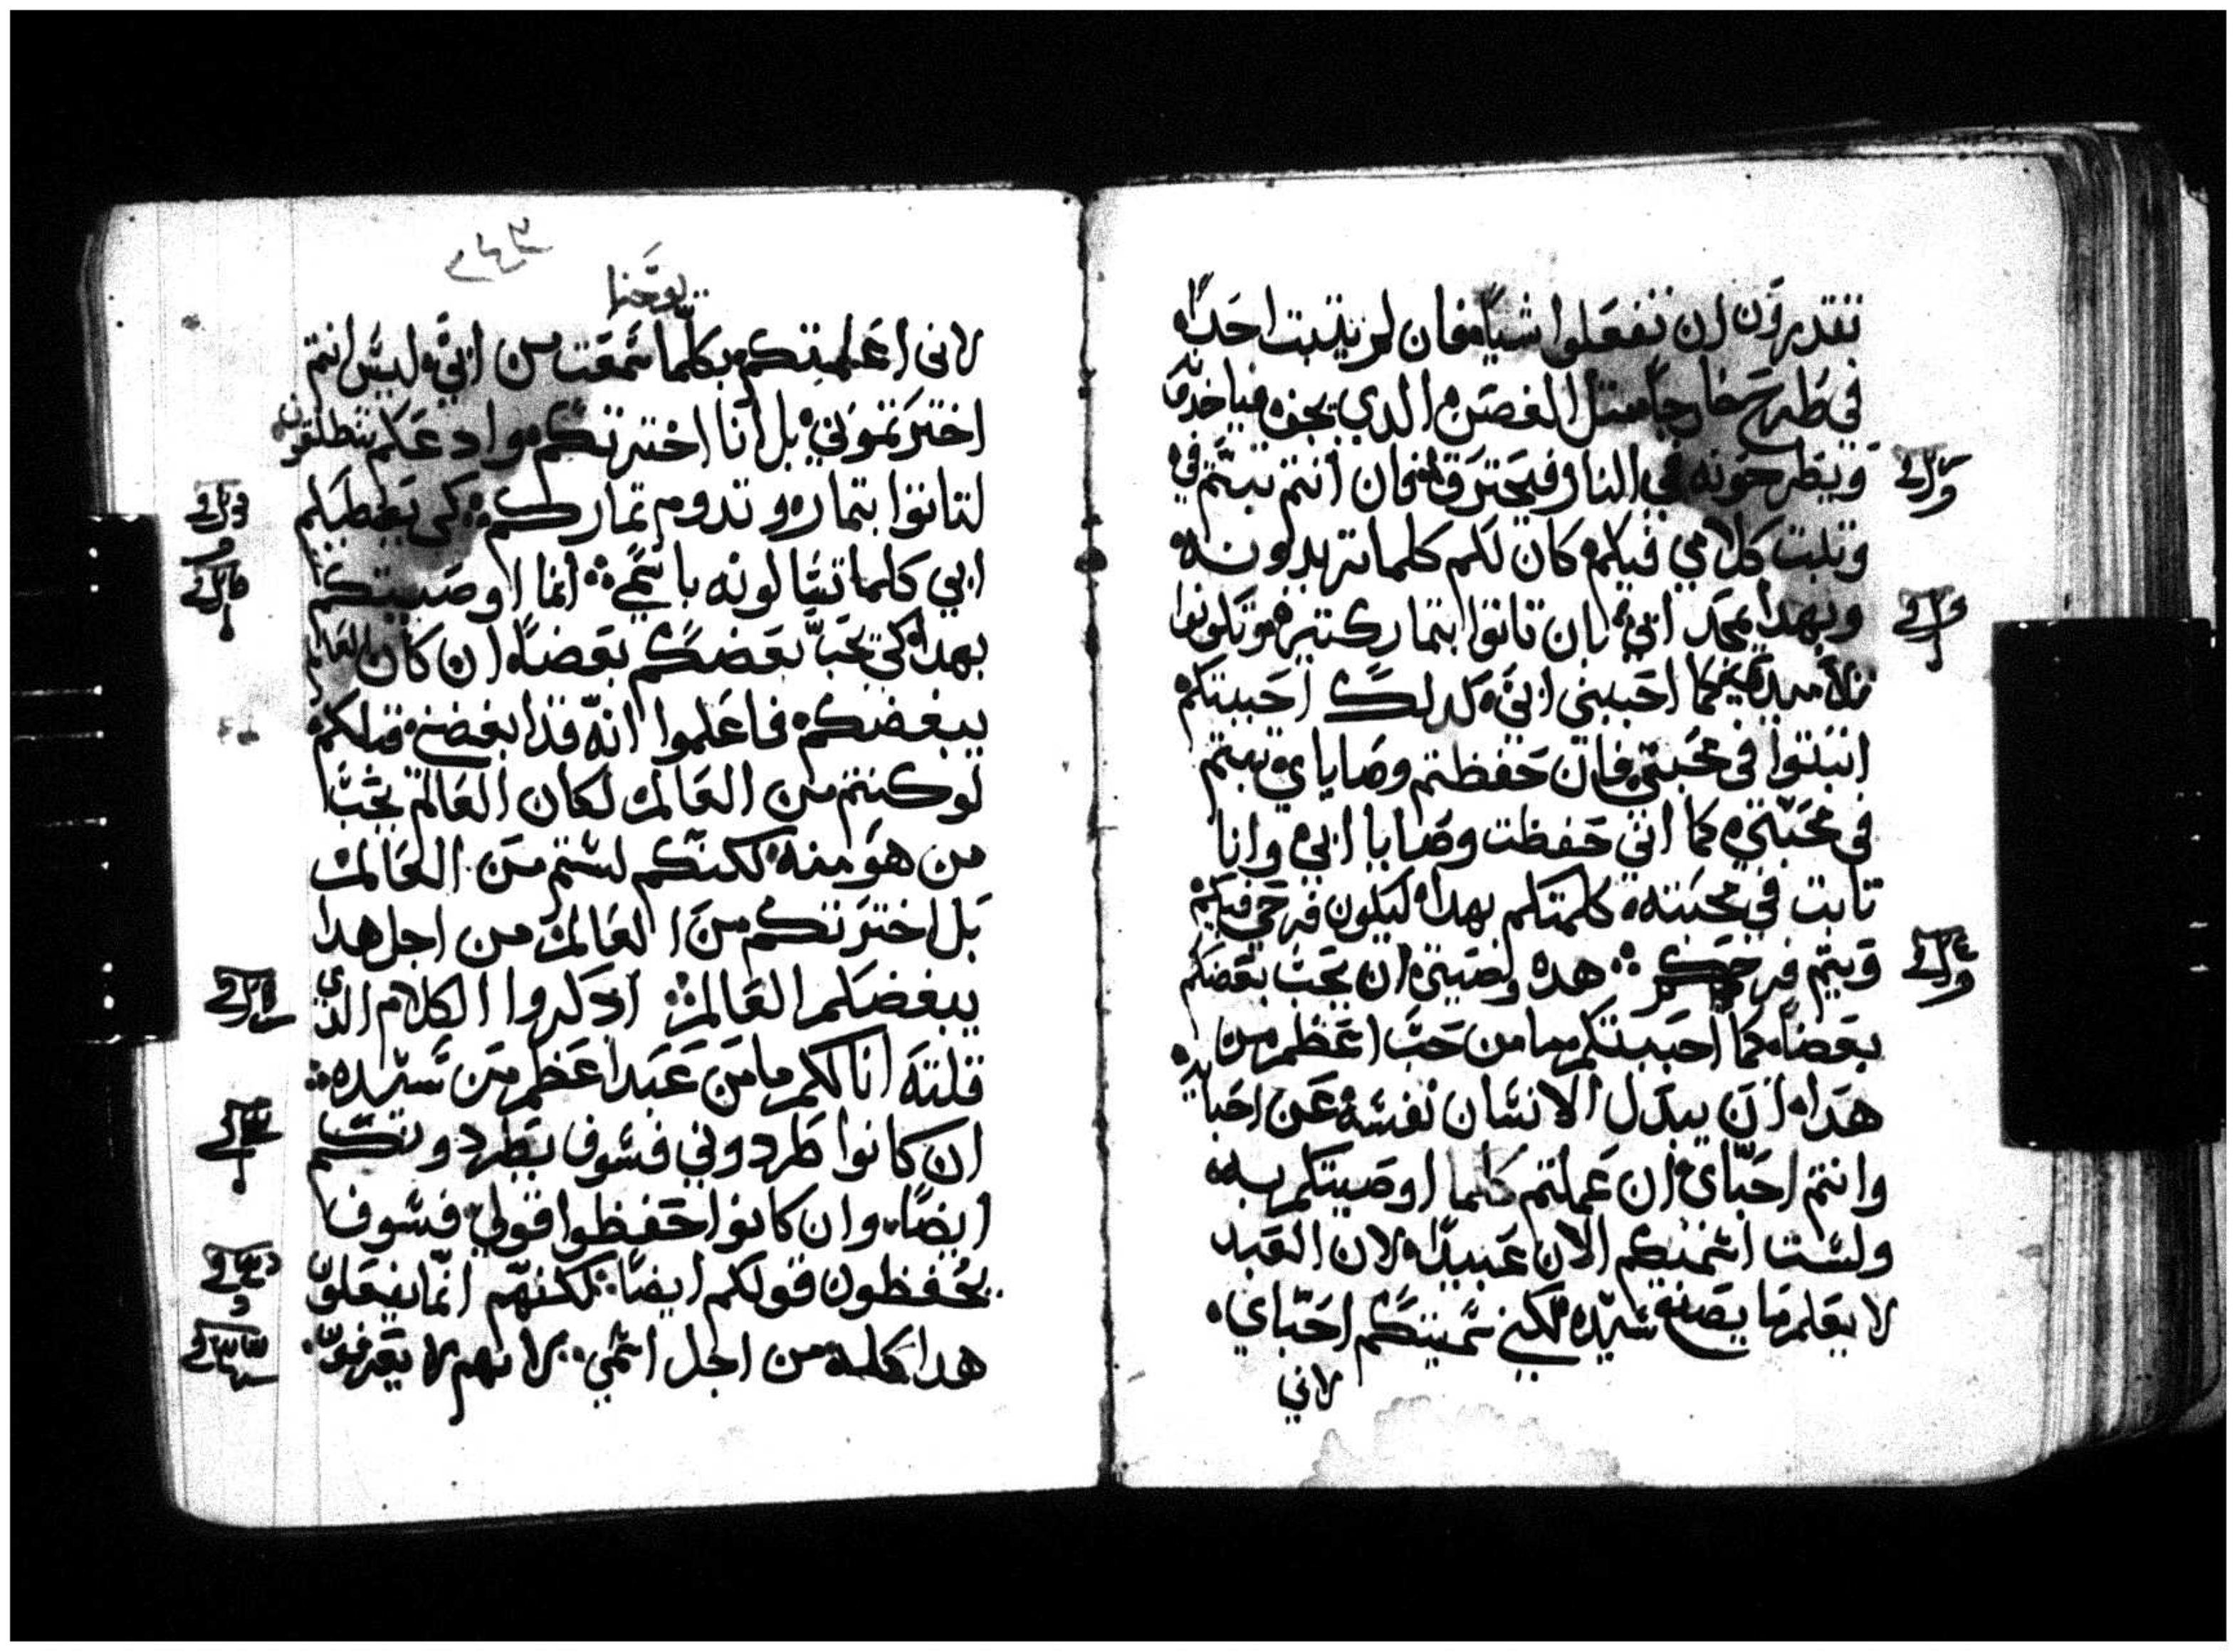 تقدرون ان تفعلوا شيا، فان لم يتبت احدا،
في طرح خارجا متل الغصن، الدي يجف، فياخدونه
ويطرحونه في النار فيحترق، فان انتم تبتم في
وتبت كلامي فيكم، كان لكم كلما تريدونه،
وبهدا يمجد ابي، بان تاتوا بتمار كتيره، وتكونوا
تلاميدي، كما احببني ابي، كدلك احببتكم
اتبتوا في محبتي، فان حفظتم وصاياي تبتم
في محبتي، كما اني حفظت وصايا ابي، وانا
تابت في محبته، كلمتكم بهدا، ليكون فرحي فيكم
ويتم فرحكم ܀ هده وصيتي، ان يحب بعضكم
بعضا، كما احببتكم، ما من حب اعظم من
هدا، ان يبدل الانسان نفسه عن احبايه
وانتم احباي، ان عملتم كلما اوصيتكم به،
ولست اسميكم الان عبيدا، لان العبد
لا يعلم ما يصنع سيده، لكني سميتكم احباي،
لاني
٢٤٣
يوحنا
لاني اعلمتكم بكلما سمعت من ابي، ليس انتم
اخترتموني، بل انا اخترتكم، وادعكم تنطلقون
لتاتوا بتماره، وتدوم تماركم، كي يعطيكم
ابي كلما تسالونه باسمي ܀ انما اوصيتكم
بهدا، كي يحب بعضكم بعضا، ان كان العالم
يبغضكم، فاعلموا انه قد ابغضني قبلكم،
لو كنتم من العالم لكان العالم يحب
من هو منه، لكنكم لستم من العالم
بل اخترتكم من العالم من اجل هدا
يبغضكم العالم ܀ ادكروا الكلام الدي
قلته انا لكم، ما من عبد اعظم من سيده ܀
ان كانوا طردوني فسوف يطردونكم
ايضا، وان كانوا حفظوا قولي، فسوف
يحفظون قولكم ايضا، لكنهم انما يفعلون
هدا كله من اجل اسمي، لانهم لا يعرفون